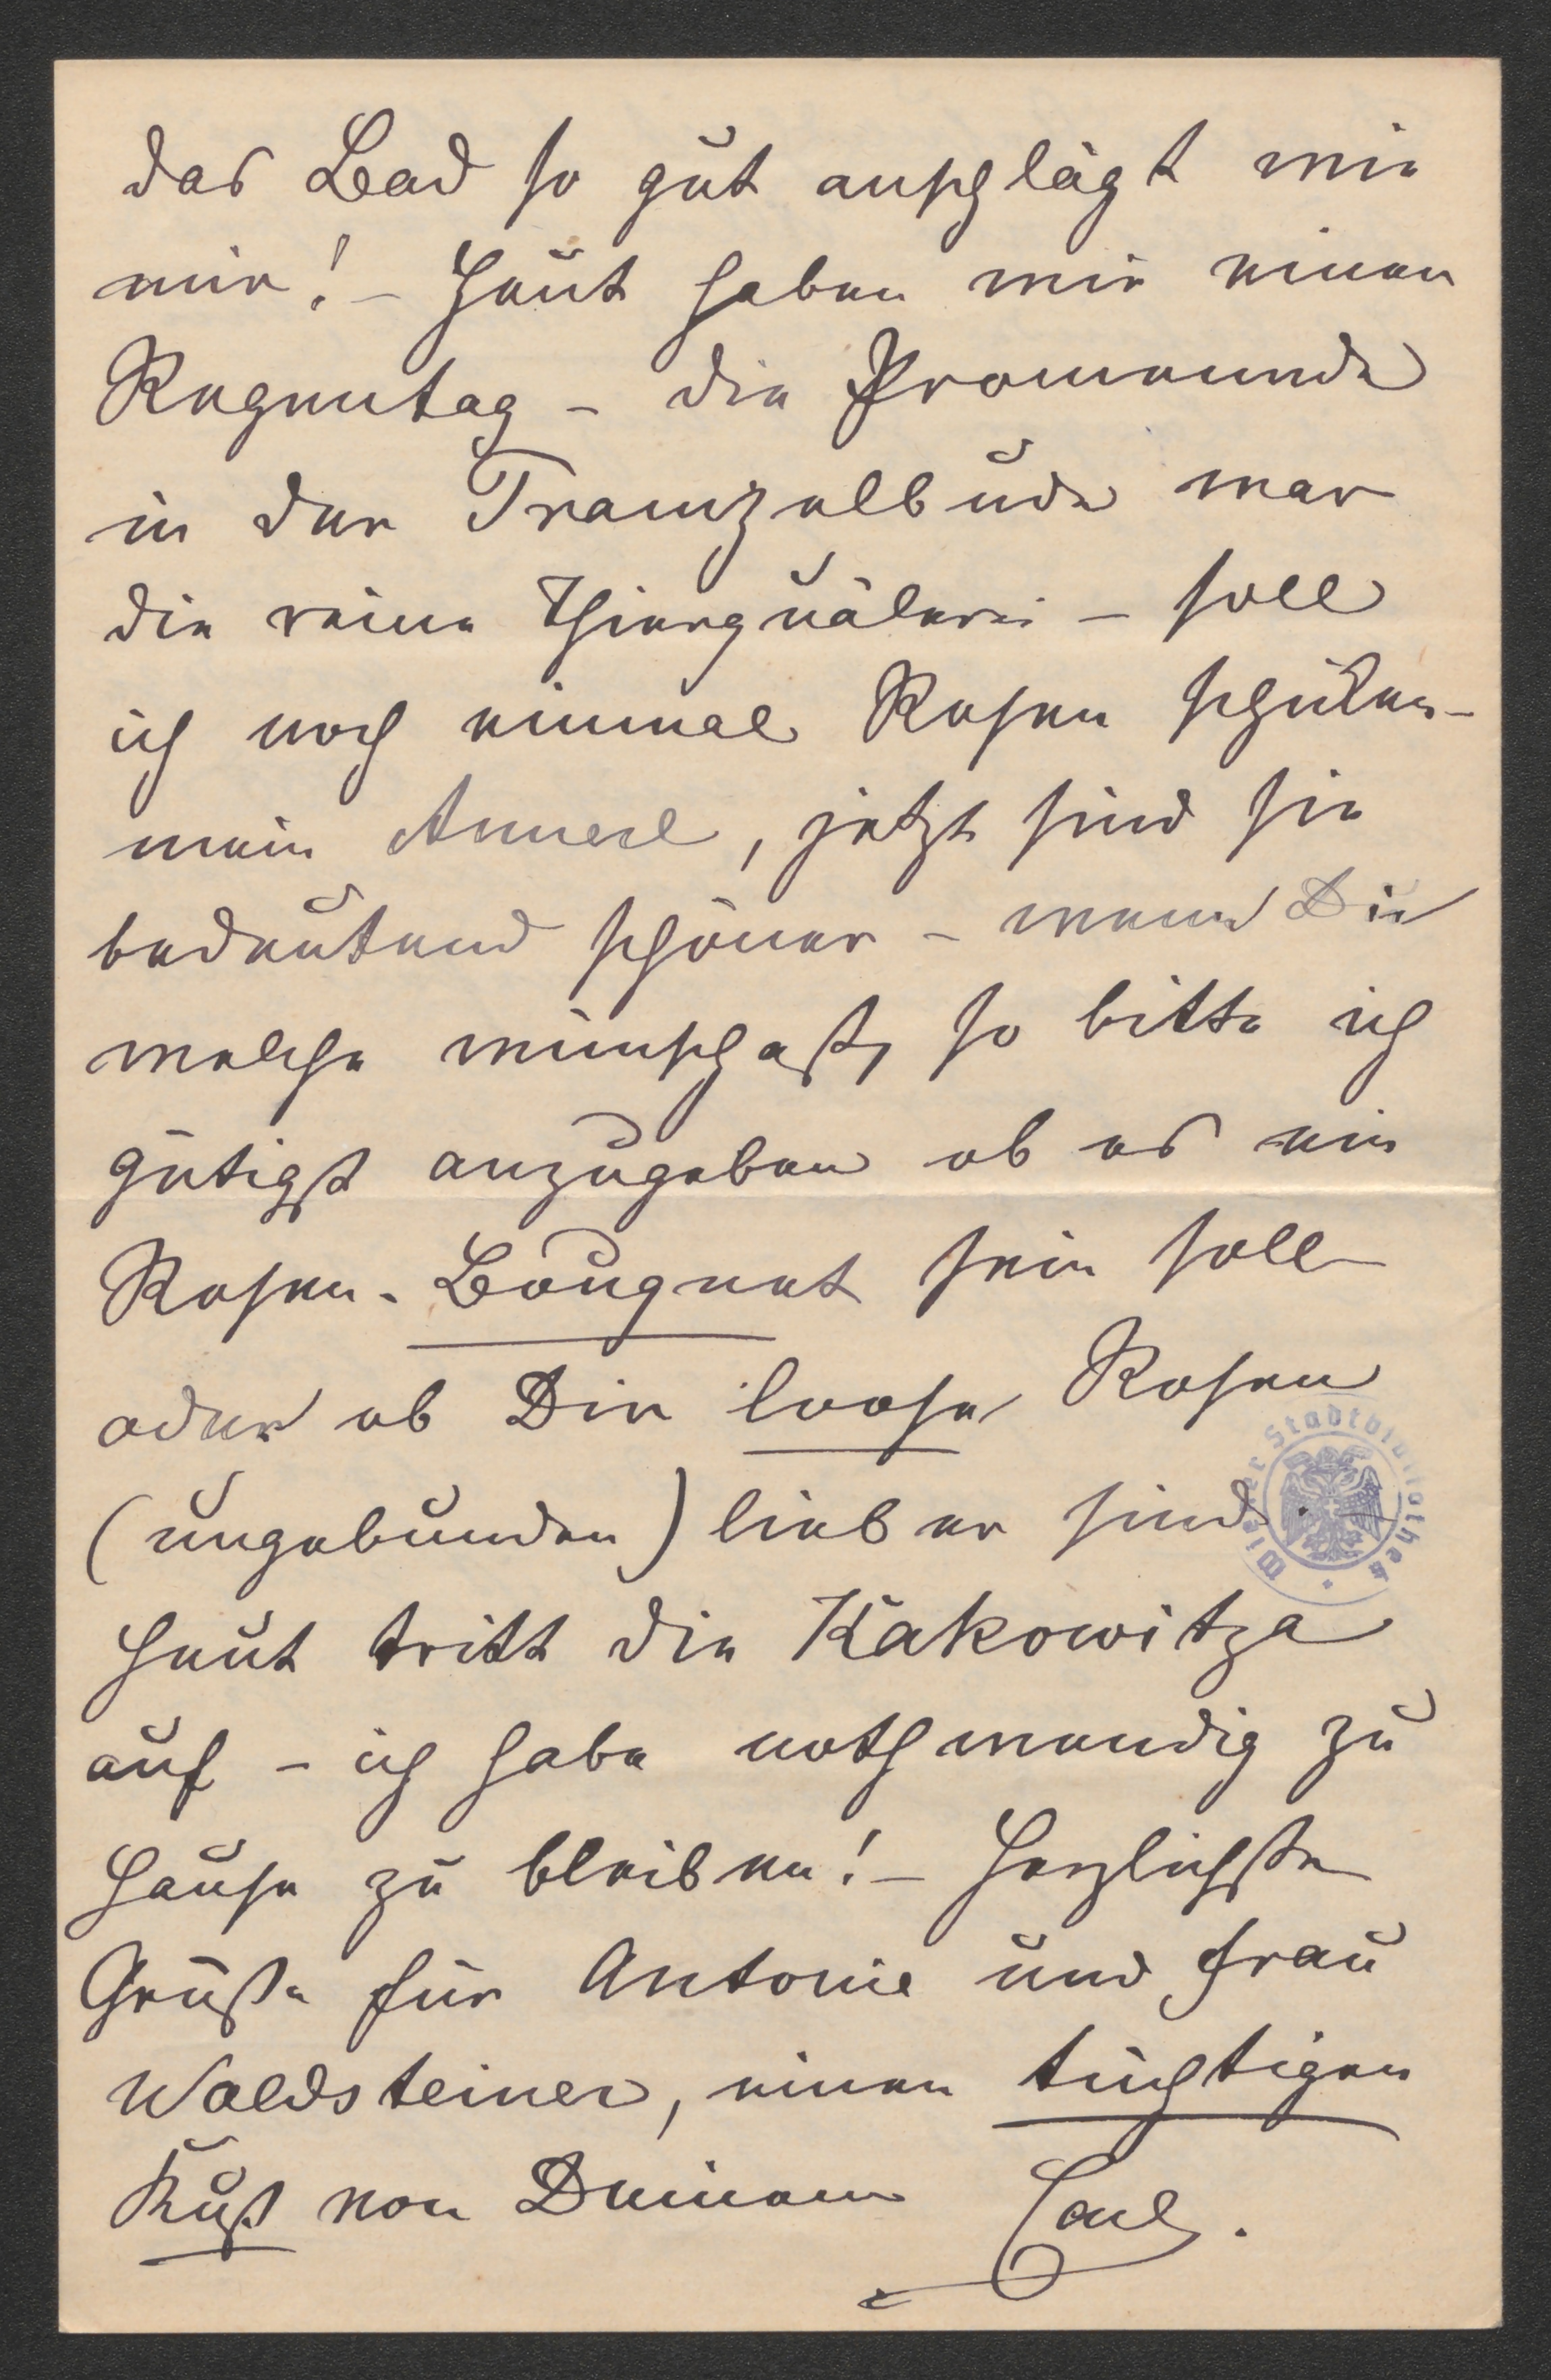 das Bad so gut anschlägt wie
mir! – Heut haben wir einen
Regentag – die Promenade
in der Trampelbude war
die reine Thierquälerei – soll
ich noch einmal Rosen schicken –
mein Annerl, jetzt sind sie
bedeutend schöner – wenn Du
welche wünschest, so bitte ich
gütigst anzugeben ob es ein
Rosen-Bouquet sein soll
oder ob Dir loose Rosen
(ungebunden) lieber sind. –
Heut tritt die Kakowitza
auf – ich habe nothwendig zu
Hause zu bleiben! – Herzlichste
Grüße für Antonie und Frau
Waldsteiner, einen tüchtigen
Kuß von Deinem Carl.
Wiener Stadtbibliothek